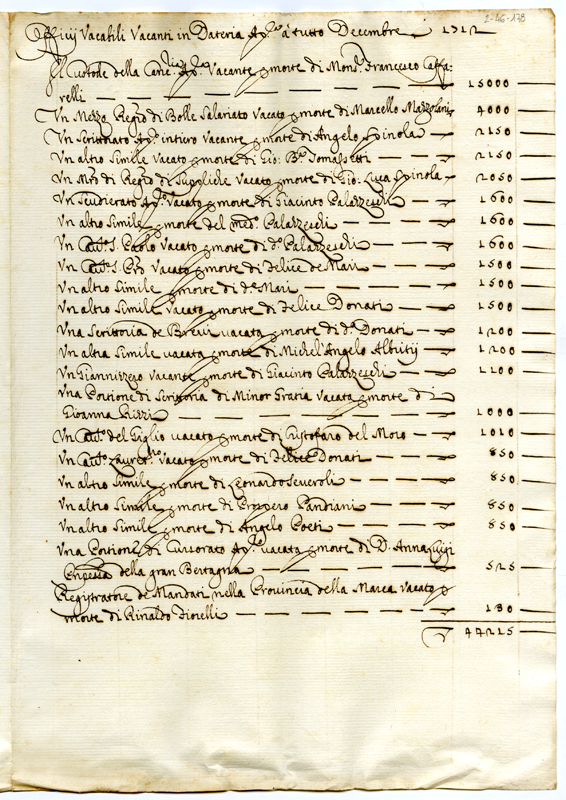 2-46-178
Offitij Vacabili Vacanti in Dataria Ap.ca à tutto Decembre 1712
Il Custode della Canc.ria Ap.ca Vacante p morte di Mons.r Francesco Caffa-
relli 15000
Un Mezzo Regro di Bolle Salariato Vacato p morte di Marcello Mazzolani 4000
Un Scrittorato Ap.co intiero Vacante p morte di Angelo Spinola 2150
Un altro Simile Vacato p morte di Gio: Bta Tomassetti 2150
Un Mro di Regro di Suppliche Vacato p morte di Gio: Luca Spinola 2050
Un Scudierato Ap.co Vacato p morte di Giacinto Palazzeschi 1600
Un altro Simile p morte del med.o Palazzeschi 1600
Un Cau.to S. Paolo Vacato p morte di d.o Palazzeschi 1600
Un Cau.to S. Pro Vacato p morte di Felice de Mari 1500
Un altro Simile p morte di d.o Mari 1500
Un altro Simile Vacato p morte di Felice Donati 1500
Una Scrittoria de Brevi vacata p morte di d.o Donati 1200
Un altra Simile vacata p morte di Michel'Angelo Albitij 1200
Un Giannizzero Vacante p morte di Giacinto Palazzeschi 1100
Una Portione di Scrittoria di Minor Gratia Vacata p morte di
Gioanna Rizzi 1000
Un Cau.to del Giglio vacato p morte di Cristofaro del Moro 1010
Un Cau.to Lauret.no Vacato p morte di Felice Donati 850
Un altro Simile p morte di Leonardo Severoli 850
Un altro Simile p morte di Prospero Pandiani 850
Un altro Simile p morte di Angelo Poeti 850
Una Portione di Cursorato Ap.co vacata p morte di D. Anna Luigi
Pnpessa della gran Bertagna 525
Registratore de Mandati nella Provincia della Marca Vacato p
morte di Rinaldo Fiorelli 180
47215